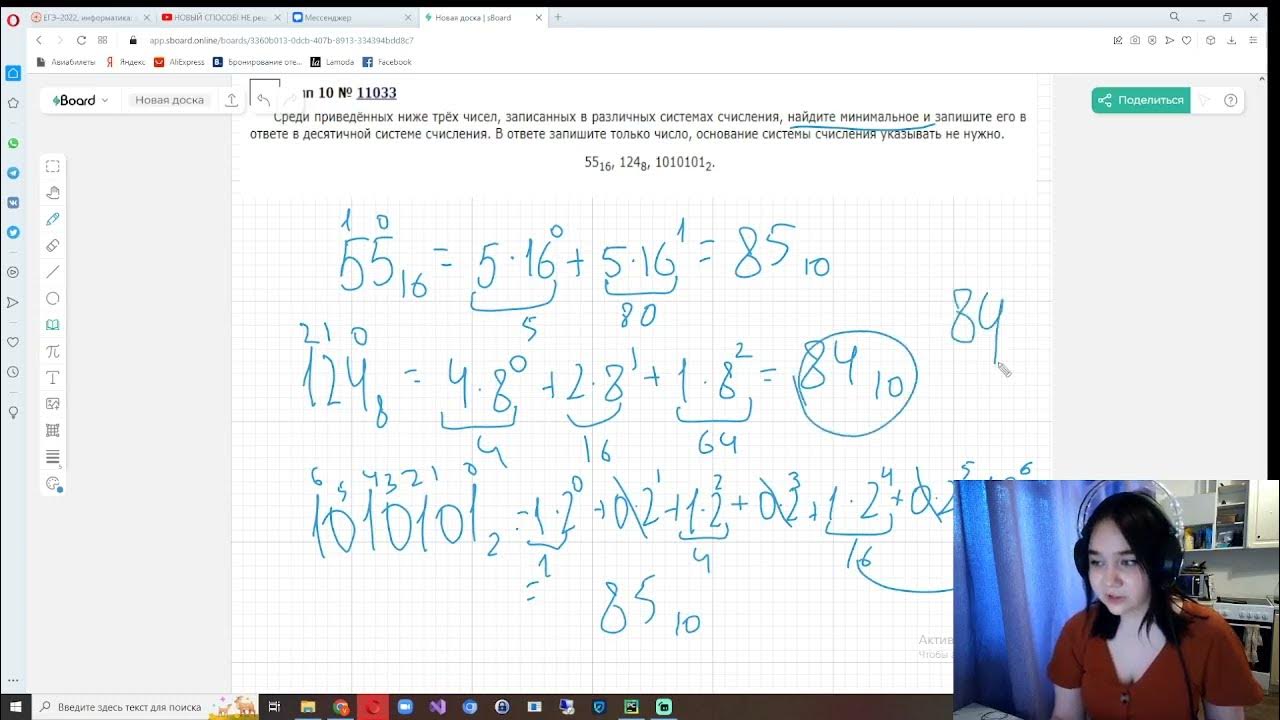 ЕГЭ–2022, информатика:
НОВЫЙ СПОСОБ! НЕ реш
Мессенджер
Новая доска | sBoard
app.sboard.online/boards/3360b013-0dcb-407b-8913-334394bdd8c7
Авиабилеты Яндекс AliExpress Бронирование оте... Lamoda Facebook
sBoard Новая доска
Поделиться
ип 10 № 11033
Среди приведённых ниже трёх чисел, записанных в различных системах счисления, найдите минимальное и запишите его в
ответе в десятичной системе счисления. В ответе запишите только число, основание системы счисления указывать не нужно.
55₁₆, 124₈, 1010101₂.
1 0
55₁₆ = 5·16⁰ + 5·16¹ = 85₁₀
5 80
84
2 1 0
124₈ = 4·8⁰ + 2·8¹ + 1·8² = 84₁₀
4 16 64
6 5 4 3 2 1 0
1010101₂ = 1·2⁰ + 0·2¹ + 1·2² + 0·2³ + 1·2⁴ + 0·2⁵ 6
1 4 16
= 85₁₀
Актив
Чтобы
Введите здесь текст для поиска